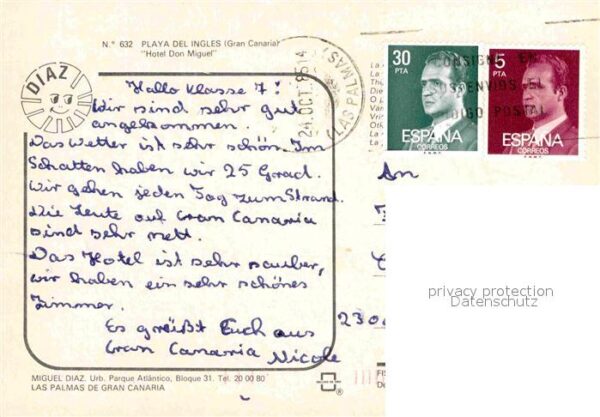 N.° 632 PLAYA DEL INGLES (Gran Canaria)
"Hotel Don Miguel"
DIAZ
Hallo Klasse 7!
Wir sind sehr gut
angekommen.
Das Wetter ist sehr schön. Im
Schatten haben wir 25 Grad.
Wir gehen jeden Tag zum Strand.
Die Leute auf Gran Canaria
sind sehr nett.
Das Hotel ist sehr sauber,
wir haben ein sehr schönes
Zimmer.
Es grüßt Euch aus
Gran Canaria Nicole
MIGUEL DIAZ. Urb. Parque Atlántico, Bloque 31. Tel. 20 00 80
LAS PALMAS DE GRAN CANARIA
24.OCT.85
LAS PALMAS
30
PTA
ESPAÑA
CORREOS
5
PTA
ESPAÑA
CORREOS
CONSIGNE EN
SUS ENVIOS EL
DIGO POSTAL
An
privacy protection
Datenschutz